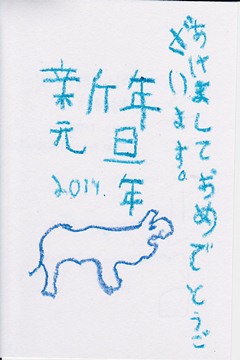 あけましておめでとうご
ざいます。
新年
元旦
2014年